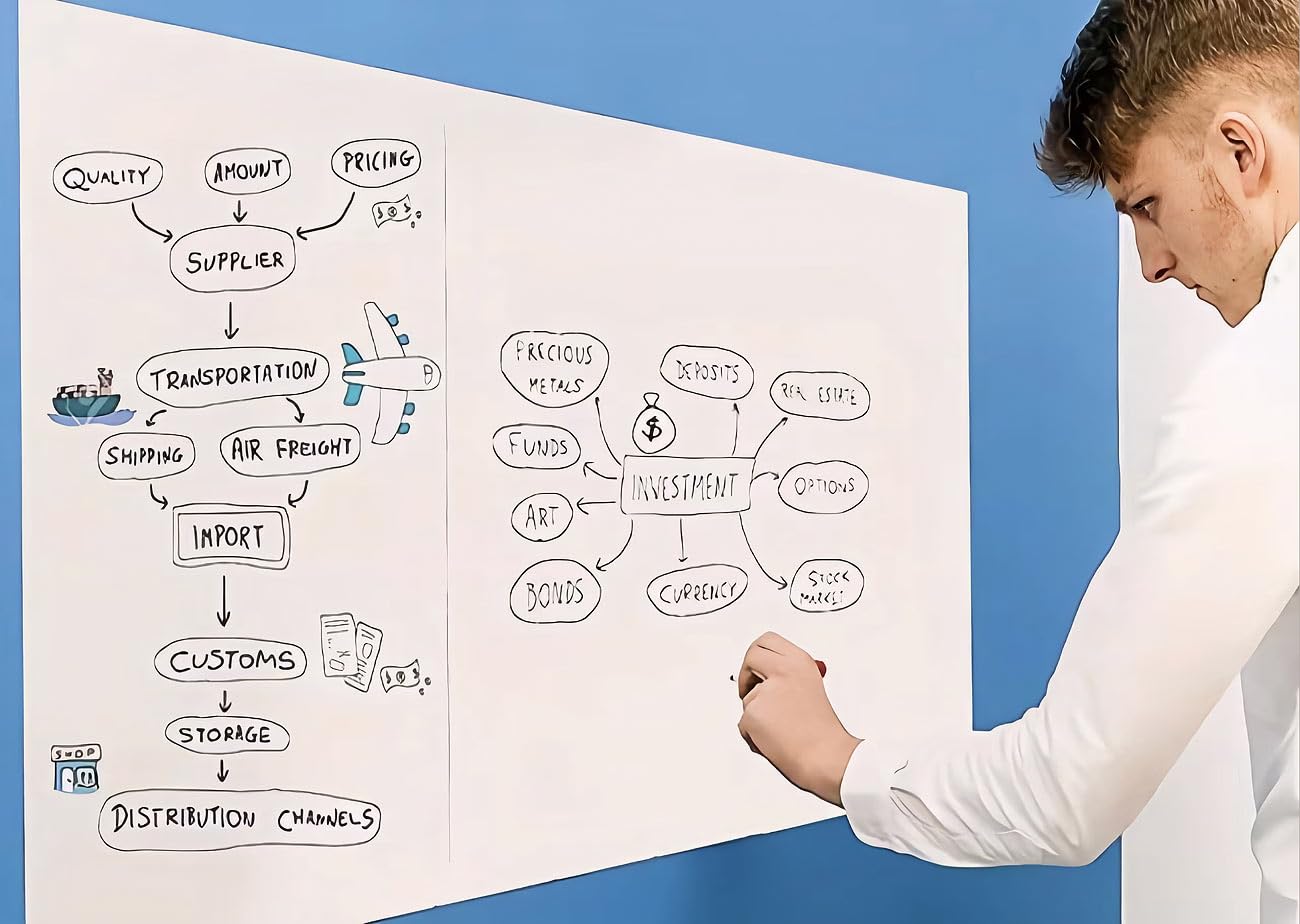 QUALITY
AMOUNT
PRICING
SUPPLIER
TRANSPORTATION
SHIPPING
AIR FREIGHT
IMPORT
CUSTOMS
STORAGE
SHOP
DISTRIBUTION CHANNELS
PRECIOUS
METALS
DEPOSITS
REAL ESTATE
$
FUNDS
INVESTMENT
OPTIONS
ART
BONDS
CURRENCY
STOCK
MARKET